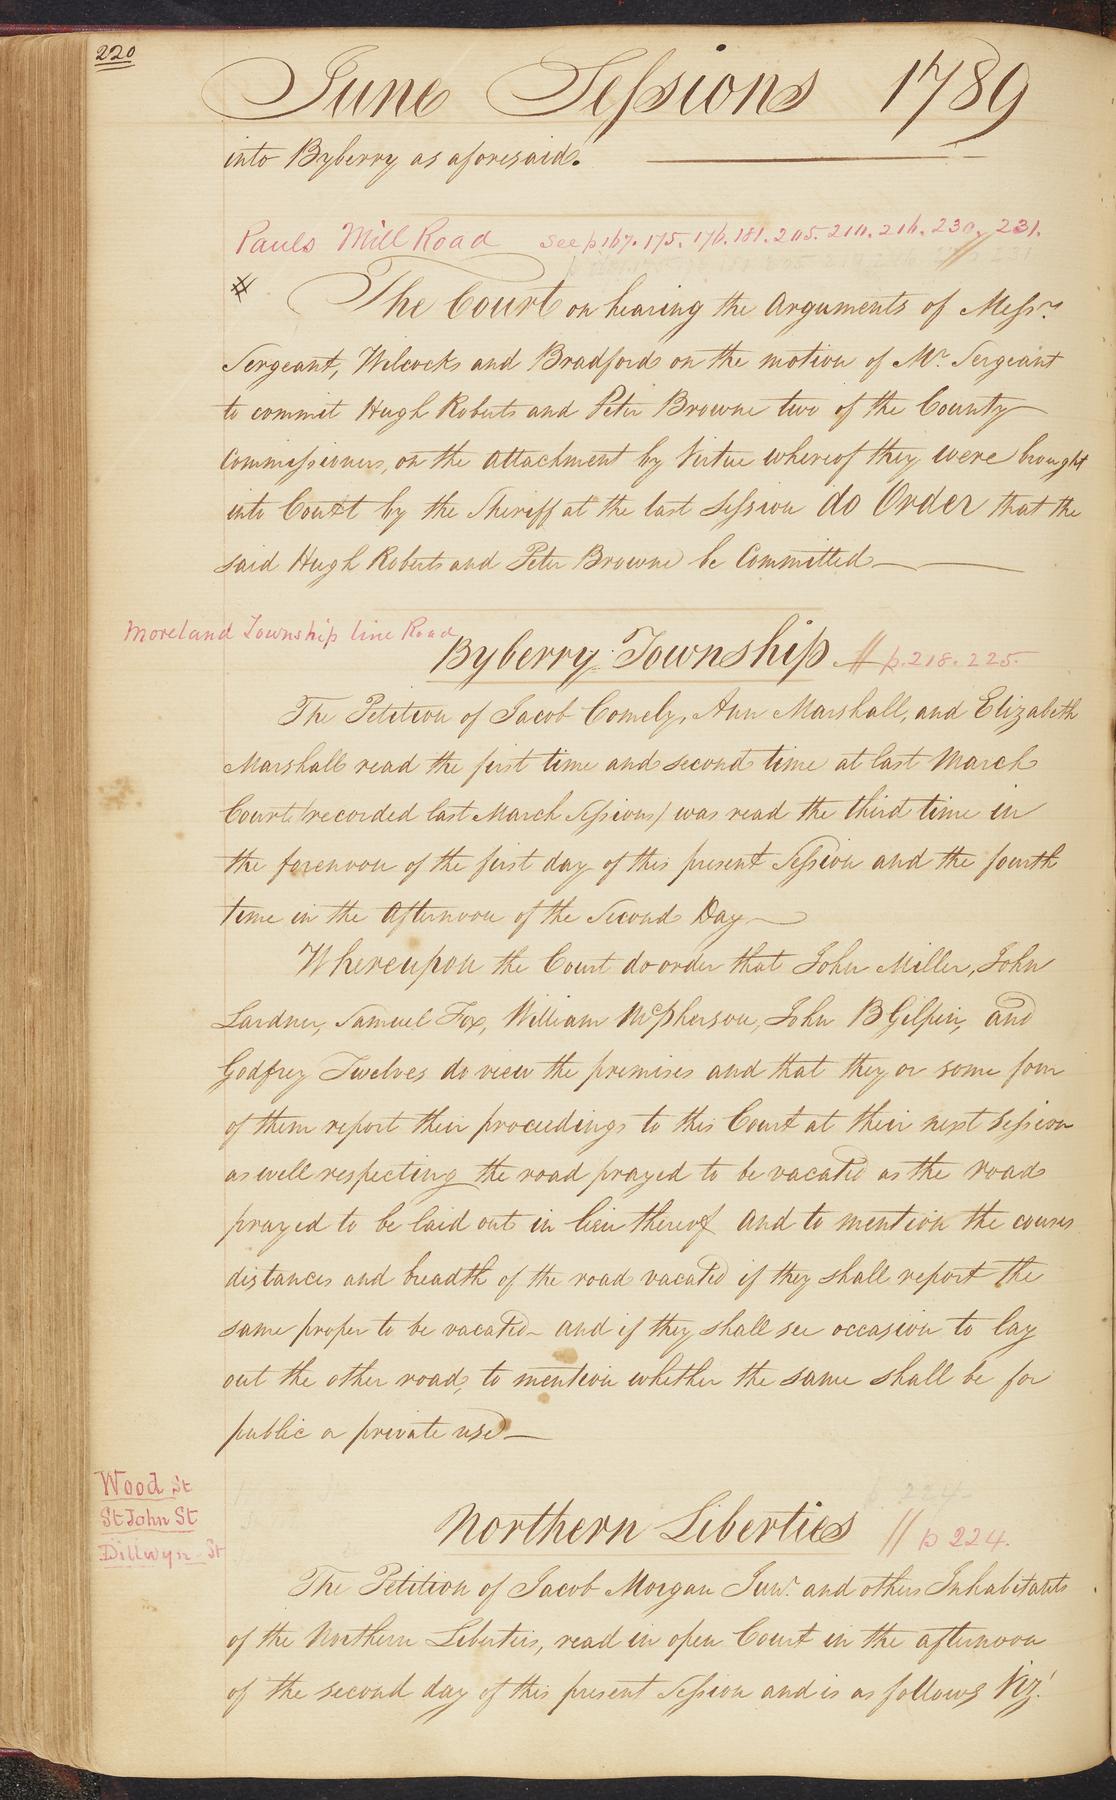 220
June Sessions 1789
into Byberry as aforesaid.
Pauls Mill Road see p 167. 175. 176. 181. 205. 210. 216. 230. 231.
The Court on hearing the Arguments of Messrs.
Sergeant, Wilcocks and Bradford on the motion of Mr. Sergeant
to commit Hugh Roberts and Peter Browne two of the County
Commissioners, on the Attachment by Virtue whereof they were brought
into Court by the Sheriff at the last Session do Order that the
said Hugh Roberts and Peter Browne be Committed
Moreland Township line Road
Byberry Township // p. 218. 225.
The Petition of Jacob Comely, Ann Marshall, and Elizabeth
Marshall read the first time and second time at last March
Court (recorded last March Sessions) was read the third time in
the forenoon of the first day of this present Session and the fourth
time in the Afternoon of the Second Day
Whereupon the Court do order that John Miller, John
Lardner, Samuel Fox, William McPherson, John B Gilpin, and
Godfrey Twelves do view the premises and that they or some four
of them report their proceedings to this Court at their next Session
as well respecting the road prayed to be vacated as the road
prayed to be laid out in lieu thereof and to mention the courses
distances and breadth of the road vacated if they shall report the
same proper to be vacated and if they shall see occasion to lay
out the other road, to mention whether the same shall be for
public or private use
Wood St
St John St
Dillwyn St
Northern Liberties // p 224.
The Petition of Jacob Morgan Junr. and others Inhabitants
of the Northern Liberties, read in open Court in the afternoon
of the second day of this present Session and is as follows Viz.